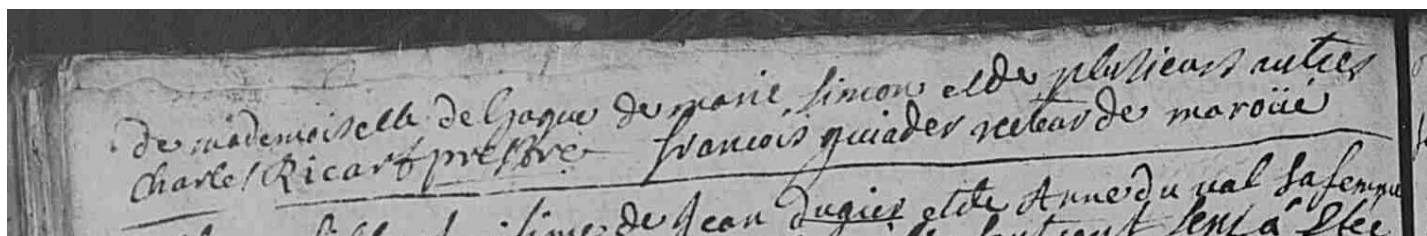 de mademoiselle de Gaque de marie simon et de plusieurs autres
Charles Ricart prestre francois guiader recteur de maroüé
fille de Jean Dugies et de Anne du val sa femme